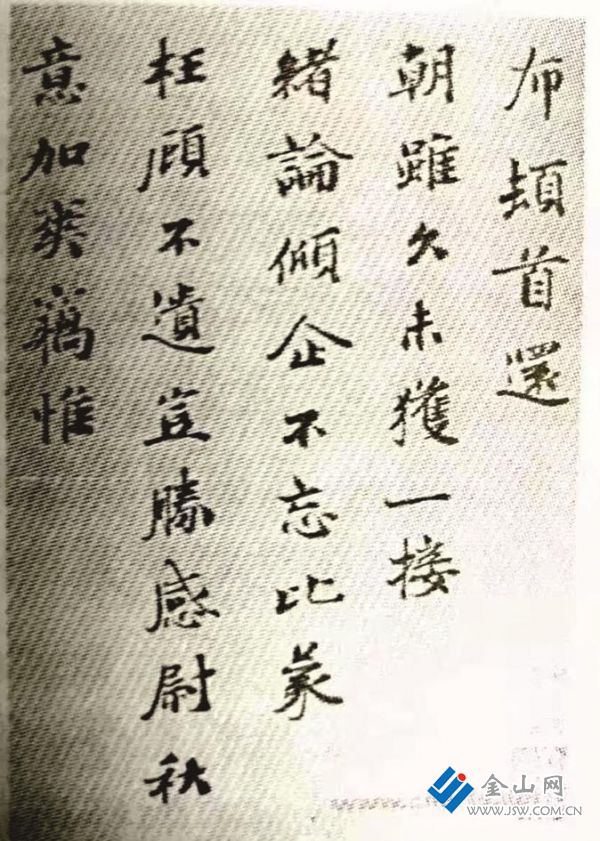 布頓首還
朝雖久未獲一接
緒論傾企不忘比蒙
枉顧不遺豈勝感尉秋
意加爽竊惟
金山网
WWW.JSW.COM.CN